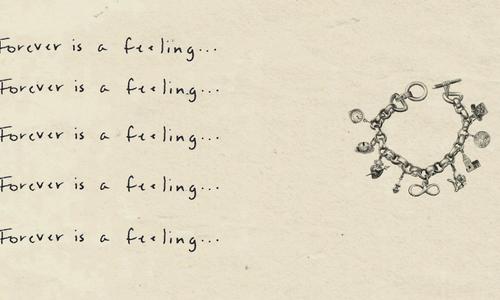 Forever is a feeling...
Forever is a feeling...
Forever is a feeling...
Forever is a feeling...
Forever is a feeling...